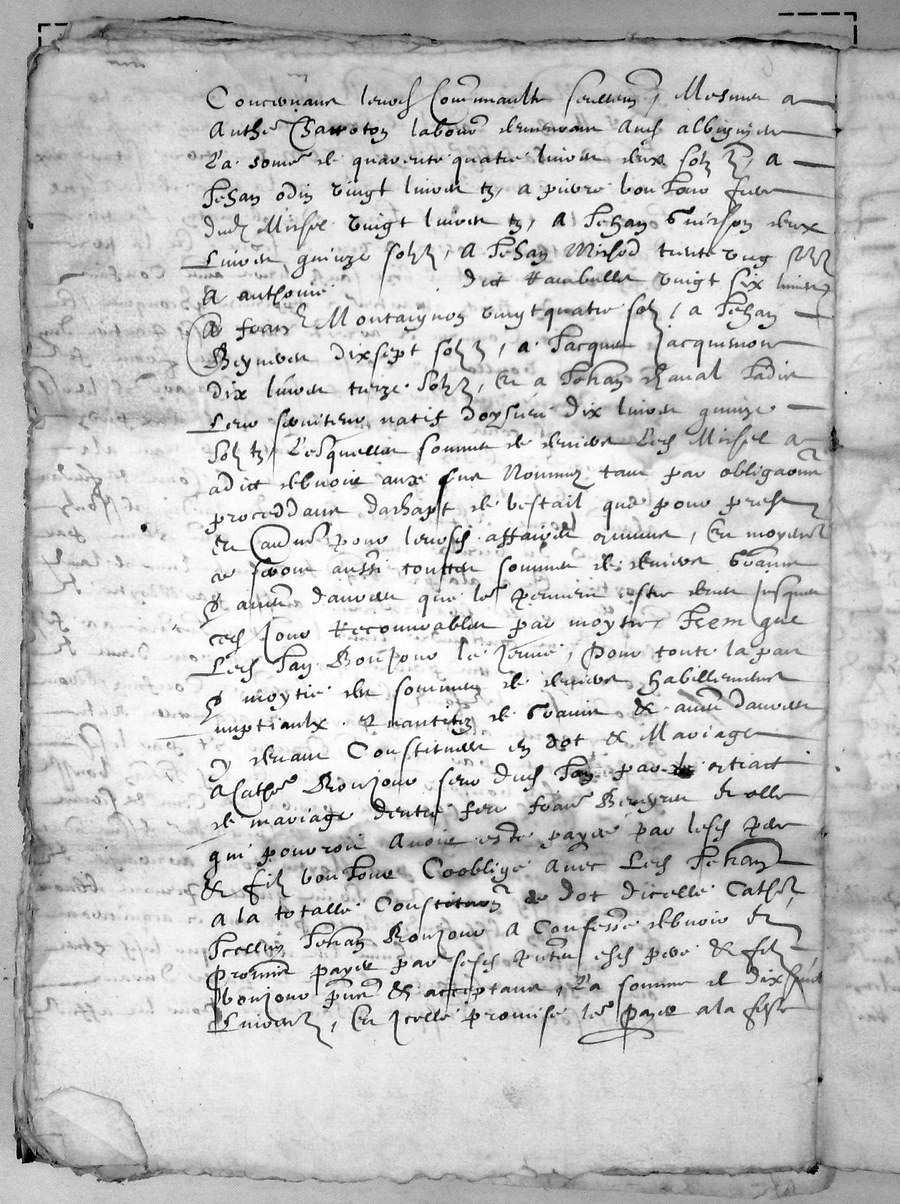 Concernant leursd Communaulte seullem , Mesmes a
Anthe Charroton labour demeurant aud albignieu
La some de quarente quatre livres deux solz tz, a
Jehan odin vingt livres tz, a pierre bonJour filz
dud Michel vingt livres tz, A Jehan Guichon deux
Livres quinze solz, A Jehan Michod trente ung solz
A anthonie dict Rambullet vingt six livres
A fran Montaignon vingtquatre solz, a Jehan
Beynier dixsept solz, a Jacques Jacquemon
dix livres treze solz, Et a Jehan Chanal Jadis
leur serviteur natif doysieu dix livres quinze
solz tz, Lesquelles sommes de deniers Led Michel a
adict debvoir aux sus Nommez tant par obligaons
proceddant dachapt de bestail que pour prest
Et pour leursd affaires commune, Et moyene
ce seront aussi touttes sommes de deniers
& autres danrees que les peuvent estre deues Jusques
ced Jour Recouvrables par moytie, Item que
Led Jan Bonjour le Jeune, pour toute la part
& moytie des sommes de deniers habillemens
nuptiaulx & nantitez de & autres danrees
y devant Constituees en dot & Mariage
A Cathe Bonjour seur dud Jan par le extrait
de mariage dentre feu fran Beynier & elle
qui pourroit avoir este payee par lesd pere
& filz bonJour Coobligé Avec Led Jehan
A la totalle Constitu de dot dicelle Cathe
Icelluy Jehan Bonjour A Confesse debvoir &
promet payer par sesd esd pere & filz
bonjour pnt & acceptant, La somme de Dix huit
Livres, Et Icelle promise les payer a la feste